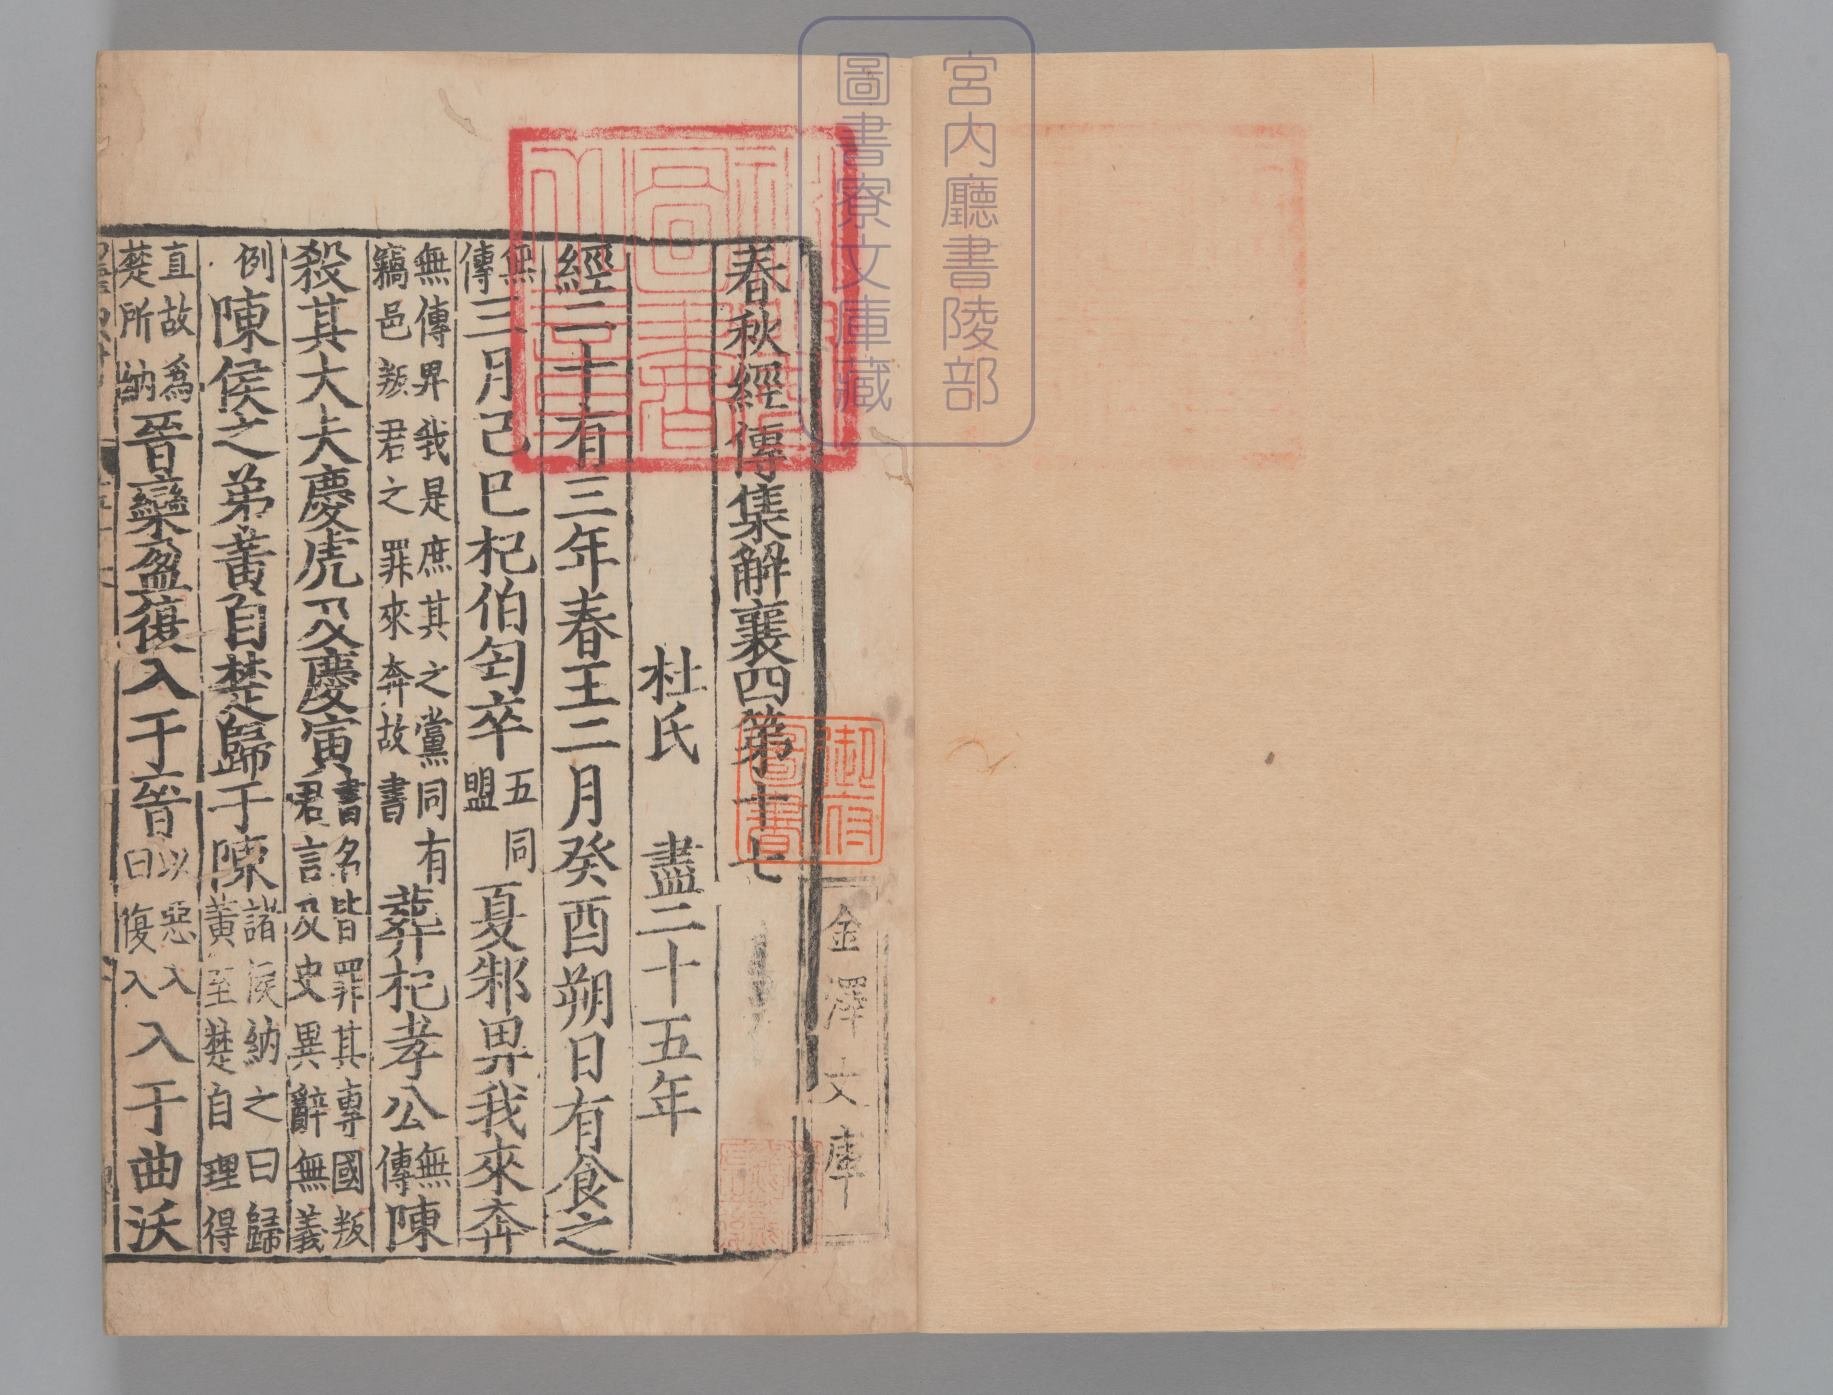 宮内廳書陵部
圖書寮文庫藏
金澤文庫
御府
圖書
春秋經傳集解襄四第十七
杜氏　盡二十五年
經二十有三年春王二月癸酉朔日有食之
無傳三月己巳杞伯匄卒五同盟夏邾畀我來奔
無傳畀我是庶其之黨同有竊邑叛君之罪來奔故書葬杞孝公無傳陳
殺其大夫慶虎及慶寅書名皆罪其專國叛君言及史異辭無義
例陳侯之弟黃自楚歸于陳諸侯納之曰歸黃至楚自理得
直故爲楚所納晉欒盈復入于晉以惡入曰復入入于曲沃